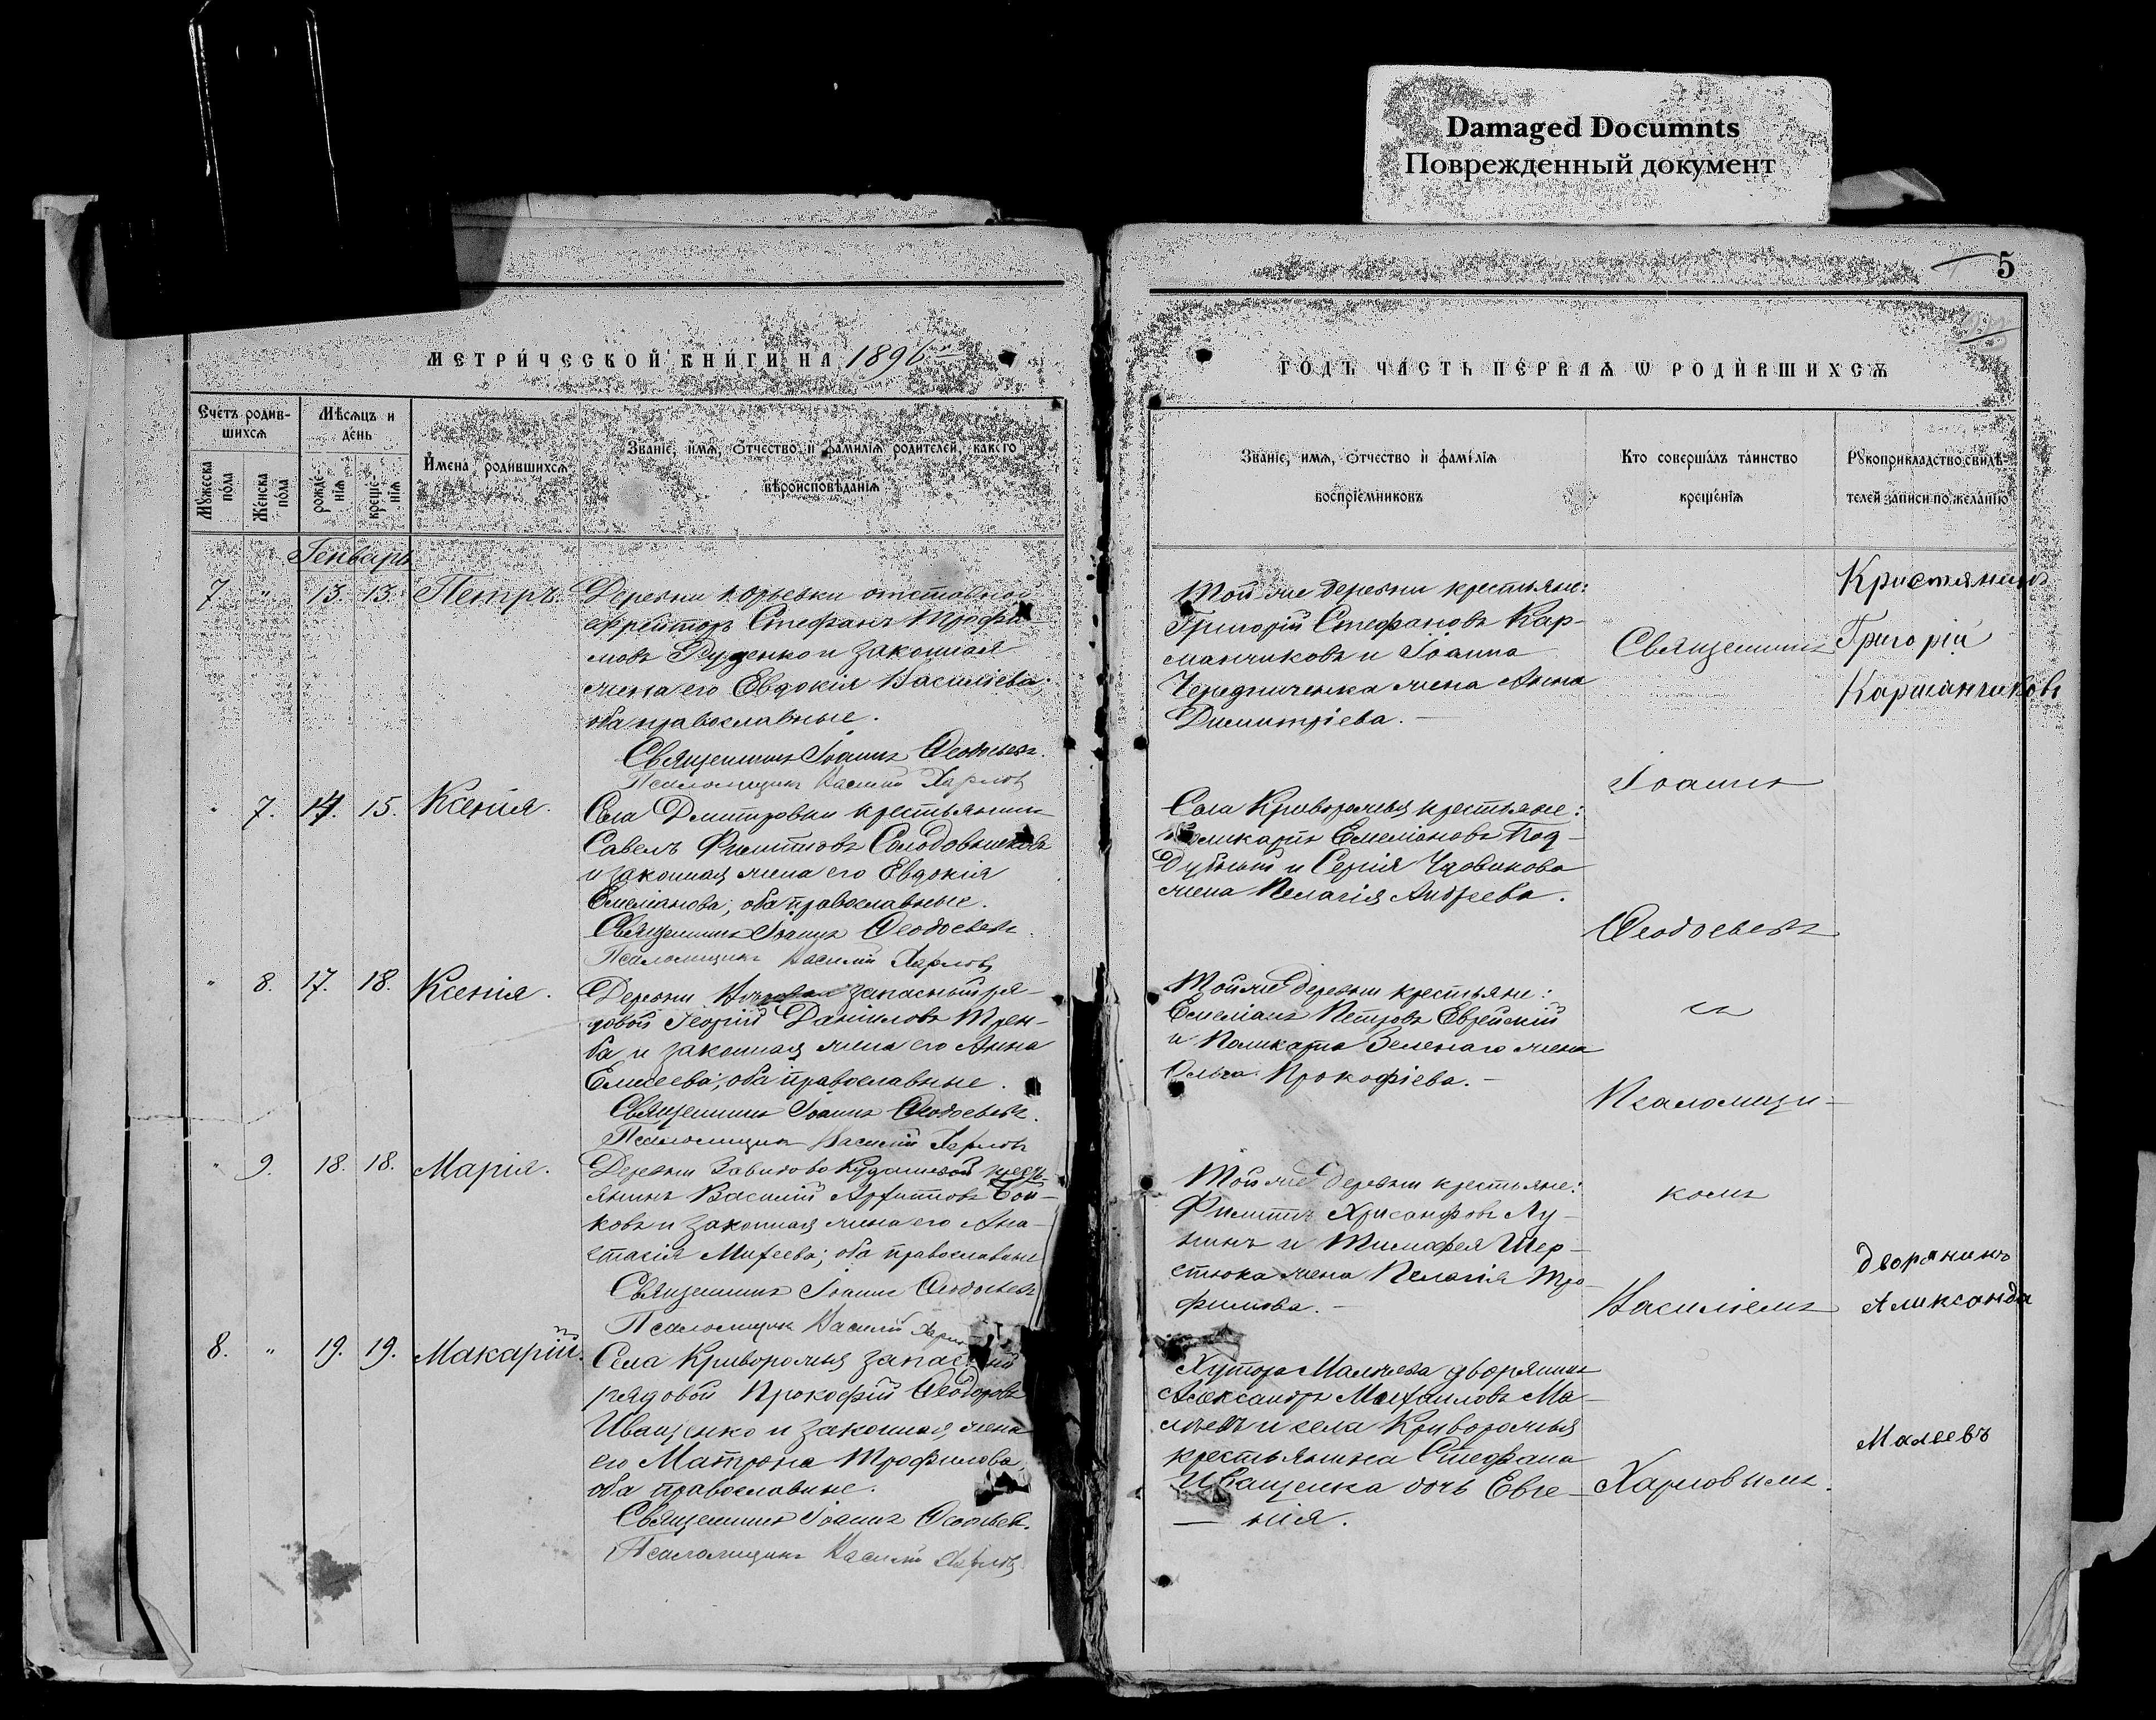 Damaged Documnts
Поврежденный документ
5
МЕТРИ́ЧЕСКОЙ КНИ́ГИ НА 1896
ГОДЪ ЧА́СТЬ ПЕ́РВАѦ Ѡ РОДИ́ВШИХСѦ
Счетъ родив-
шихсѧ
Мꙋжеска
пола
Женска
пола
Мѣсѧцъ и
день
рожде-
нїѧ
креще-
нїѧ
Имена родившихсѧ
Званїе, имѧ, ѻтчество и фамилїѧ родителей, какого
вѣроисповѣданїѧ
Званїе, имѧ, ѻтчество и фамилїѧ
воспрїемниковъ
Кто совершалъ таинство
крещенїѧ
Рꙋкоприкладство свидѣ-
телей записи по желанїю
Генварь
7 " 13. 13. Петръ.
Деревни Юрьевки отставной
ефрейторъ Стефанъ Трофи-
мовъ Руденко и законная
жена его Евдокія Василіева;
оба православные.
Священникъ Іоаннъ Ѳеодосьевъ.
Псаломщикъ Василій Харловъ
Той же деревни крестьяне:
Григорій Стефановъ Кар-
манчиковъ и Іоанна
Чередниченка жена Анна
Димитріева. —
Кристянинъ
Григорій
Карманчиковъ
" 7. 14. 15. Ксенія.
Села Дмитровки крестьянинъ
Савелъ Филипповъ Солодовниковъ
и законная жена его Евдокія
Емеліанова; оба православные.
Священникъ Іоаннъ Ѳеодосьевъ.
Псаломщикъ Василій Харловъ
Села Криворожья крестьяне:
Поликарпъ Емеліановъ Под-
дубный и Сергія Чдовикова
жена Пелагія Андреева.
" 8. 17. 18. Ксенія.
Деревни запасный ря-
довой Георгій Даніиловъ Трем-
ба и законная жена его Анна
Елисеева; оба православные.
Священникъ Іоаннъ Ѳеодосьевъ.
Псаломщикъ Василій Харловъ
Той же деревни крестьяне:
Емеліанъ Петровъ Еврейскій
и Поликарпа Зеленаго жена
Ольга Прокофіева. —
" 9. 18. 18. Марія.
Деревни Завидово Кудашевой кресть-
янинъ Василій Архиповъ Бой-
ковъ и законная жена его Ана-
стасія Михеева; оба православные
Священникъ Іоаннъ Ѳеодосьевъ
Псаломщикъ Василій Харловъ
Той же деревни крестьяне:
Филиппъ Хрисанфовъ Лу-
нинъ и Тимофея Шер-
стюка жена Пелагія Тро-
фимова. —
8. " 19. 19. Макарій.
Села Криворожья запасный
рядовой Прокофій Ѳеодоровъ
Иващенко и законная жена
его Матрона Трофимова,
оба православные.
Священникъ Іоаннъ Ѳеодосьевъ.
Псаломщикъ Василій Харловъ.
Хутора Малѣева дворянинъ
Александръ Михаиловъ Ма-
лѣевъ и села Криворожья
крестьянина Стефана
Иващенка дочь Евге-
— нія.
Священникъ
Іоаннъ
Ѳеодосьевъ
съ
Псаломщи-
комъ
Василіемъ
Харловымъ.
дворянинъ
Александа
Малеевъ